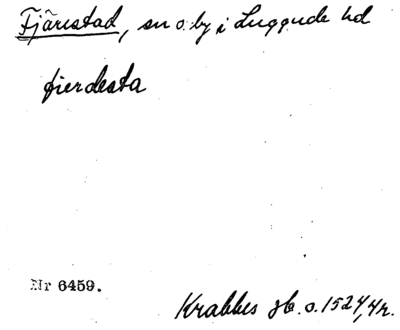 Fjärestad, sn o. by i Luggude hd
fierdesta
Nr 6459.
Krabbes jb. o. 1524, 4r.